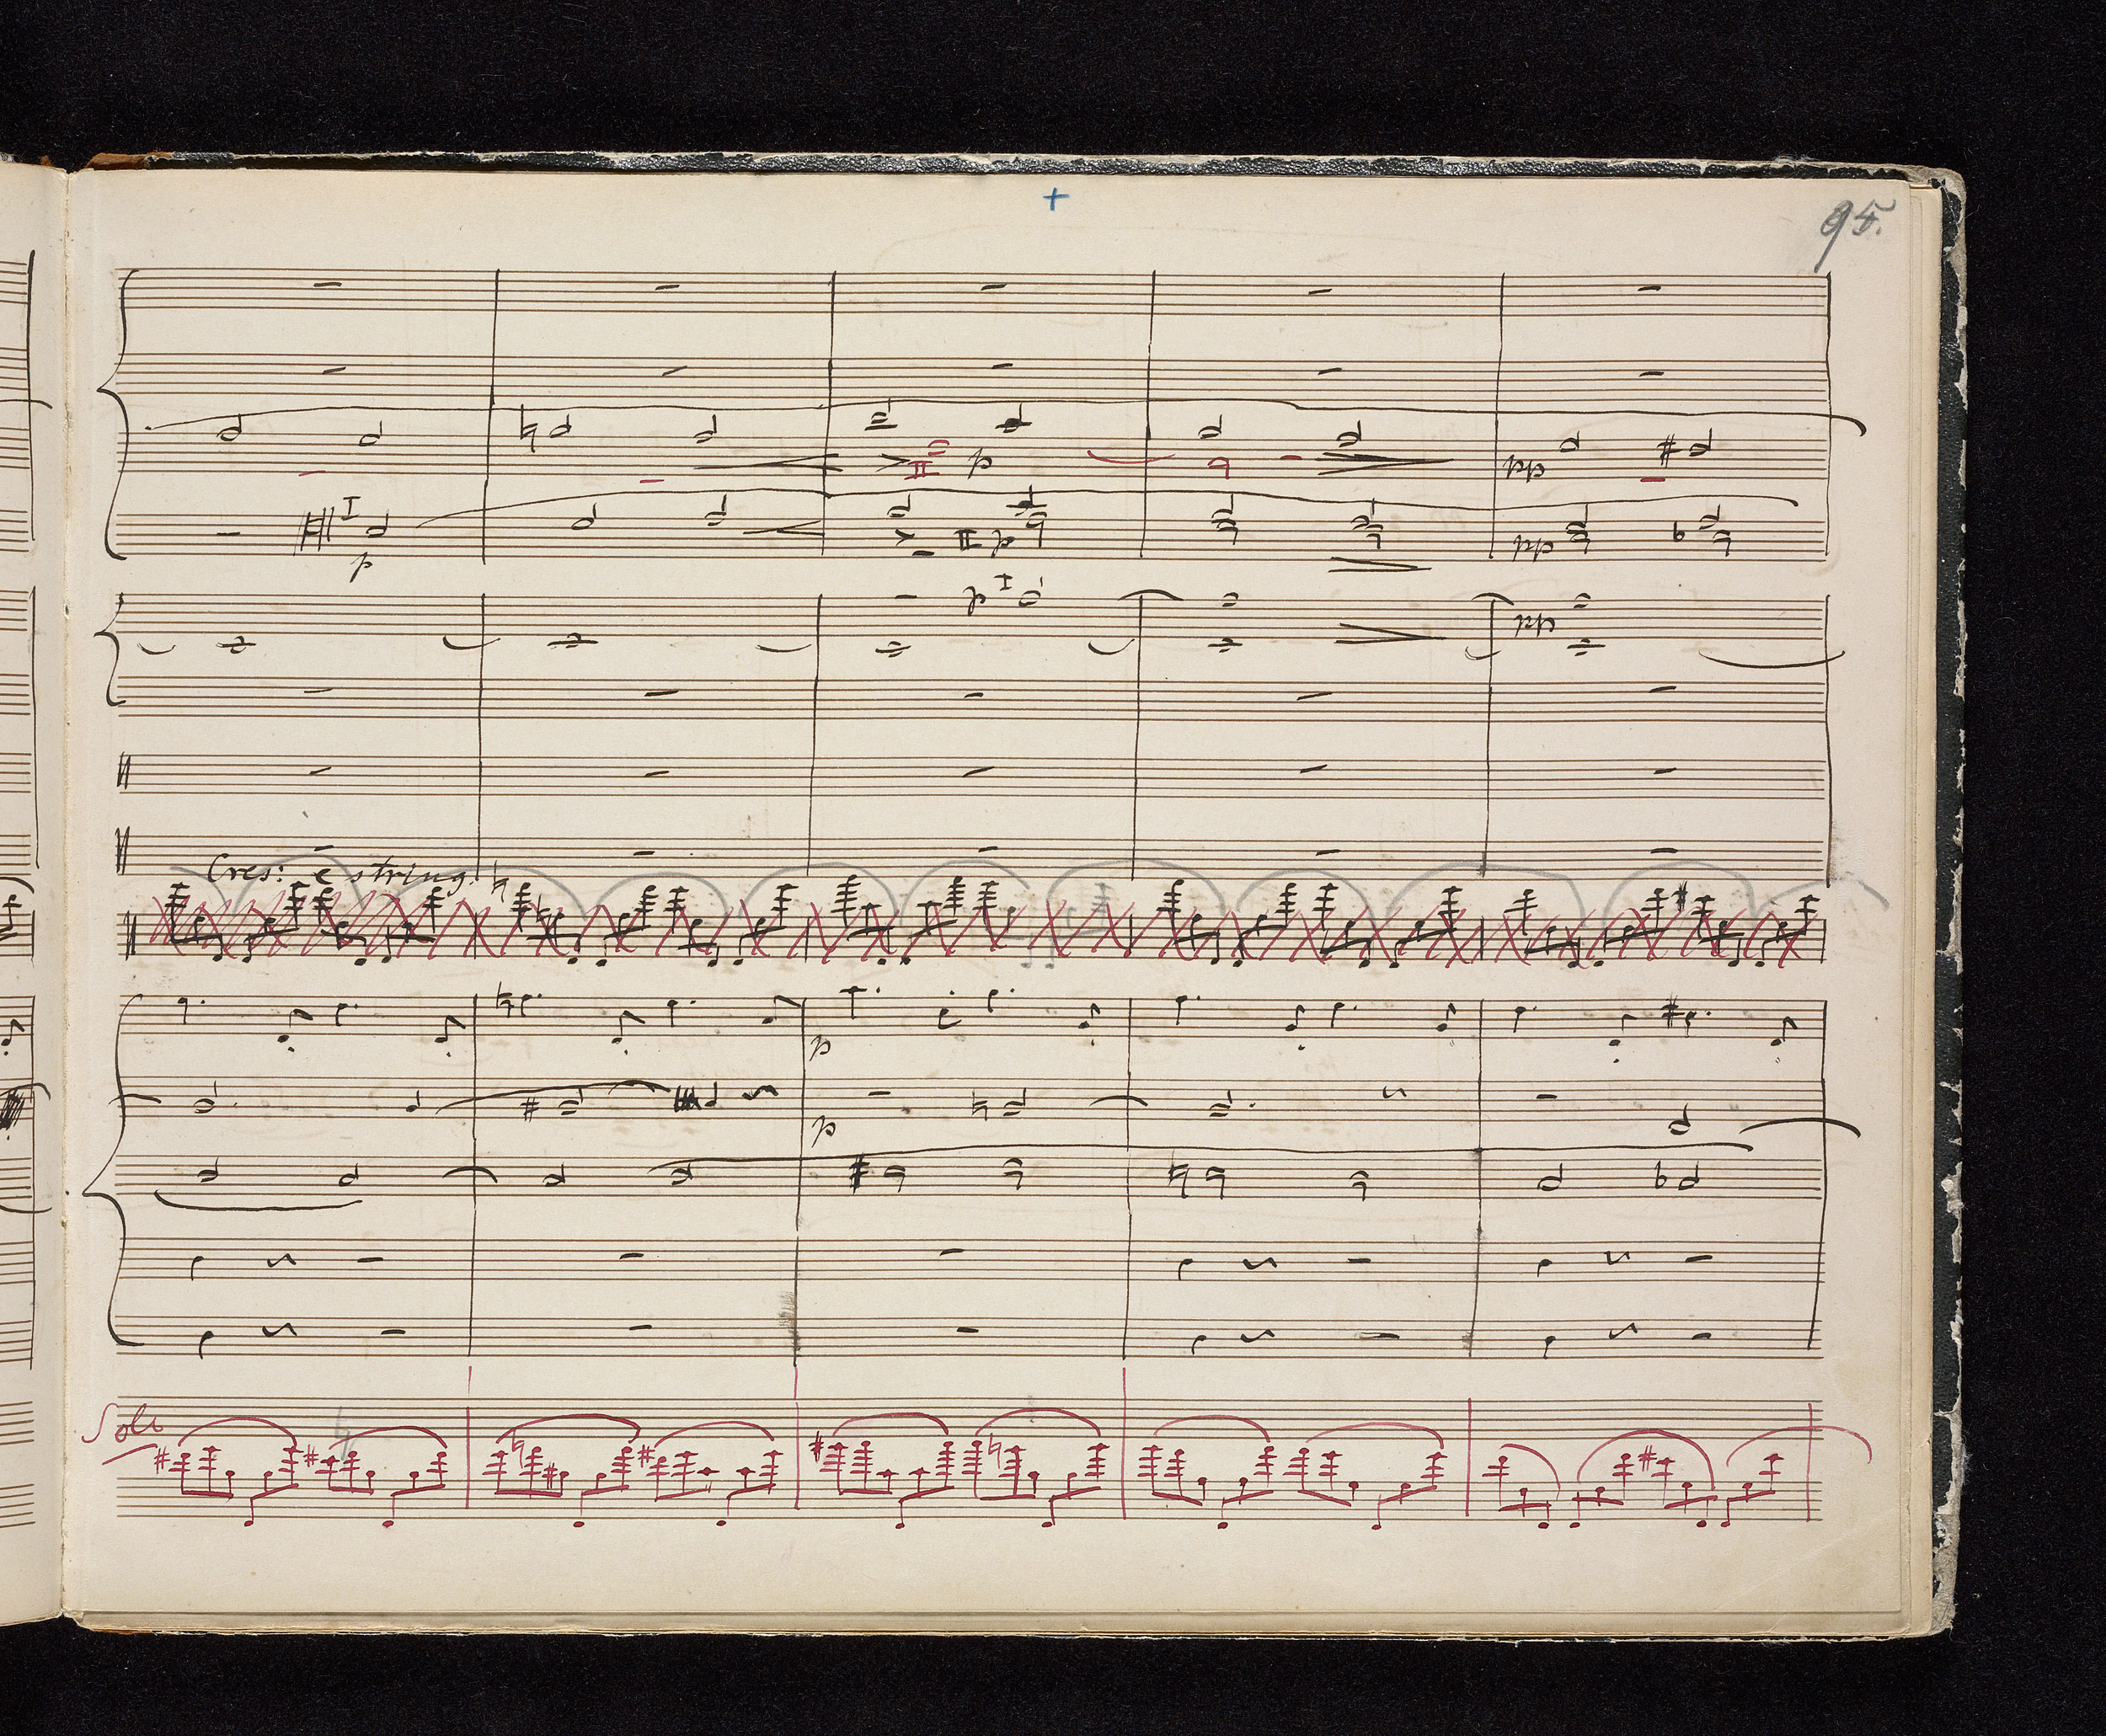 95.
II p pp
I
p II p pp
p I pp
Cres: e string.
p
p
Solo